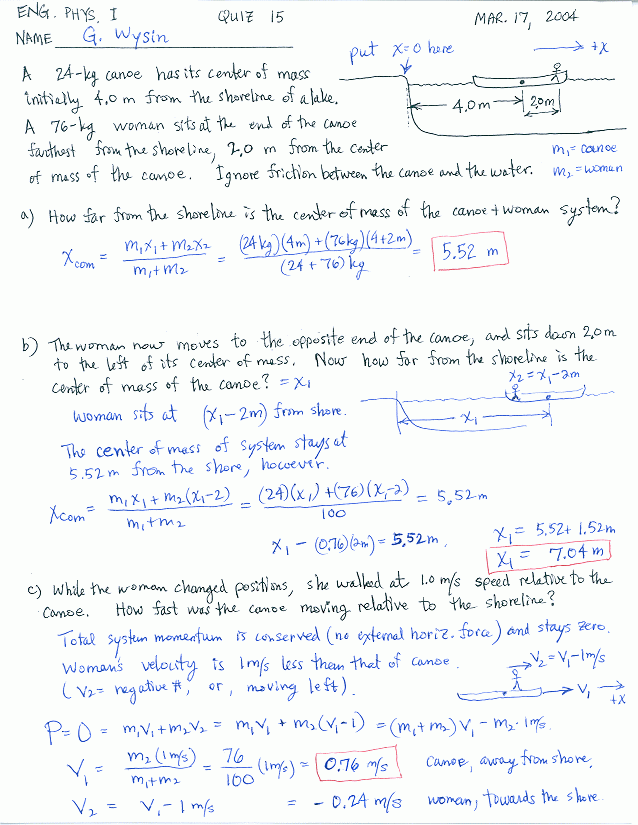 ENG. PHYS. I QUIZ 15 MAR. 17, 2004
NAME G. Wysin
put x=0 here → +x
A 24-kg canoe has its center of mass
initially 4.0 m from the shoreline of a lake.
4.0m 2.0m
A 76-kg woman sits at the end of the canoe
farthest from the shoreline, 2.0 m from the center
m₁ = canoe
of mass of the canoe. Ignore friction between the canoe and the water.
m₂ = woman
a) How far from the shoreline is the center of mass of the canoe + woman system?
Xcom = (m₁x₁ + m₂x₂)/(m₁+m₂) = ((24kg)(4m) + (76kg)(4+2m))/((24 + 76) kg) = 5.52 m
b) The woman now moves to the opposite end of the canoe, and sits down 2.0m
to the left of its center of mass. Now how far from the shoreline is the
center of mass of the canoe? = x₁
x₂ = x₁-2m
woman sits at (x₁-2m) from shore.
x₁
The center of mass of system stays at
5.52 m from the shore, however.
Xcom = (m₁x₁ + m₂(x₁-2))/(m₁+m₂) = ((24)(x₁) + (76)(x₁-2))/100 = 5.52m
x₁ - (0.76)(2m) = 5.52m,
x₁ = 5.52 + 1.52m
x₁ = 7.04 m
c) While the woman changed positions, she walked at 1.0 m/s speed relative to the
canoe. How fast was the canoe moving relative to the shoreline?
Total system momentum is conserved (no external horiz. force) and stays zero.
Woman's velocity is 1m/s less than that of canoe.
→ V₂ = V₁-1m/s
(V₂ = negative #, or, moving left).
→ V₁ → +x
P = 0 = m₁V₁ + m₂V₂ = m₁V₁ + m₂(V₁-1) = (m₁+m₂) V₁ - m₂·1m/s.
V₁ = m₂(1m/s)/(m₁+m₂) = 76/100 (1m/s) = 0.76 m/s canoe, away from shore.
V₂ = V₁-1 m/s = - 0.24 m/s woman, towards the shore.